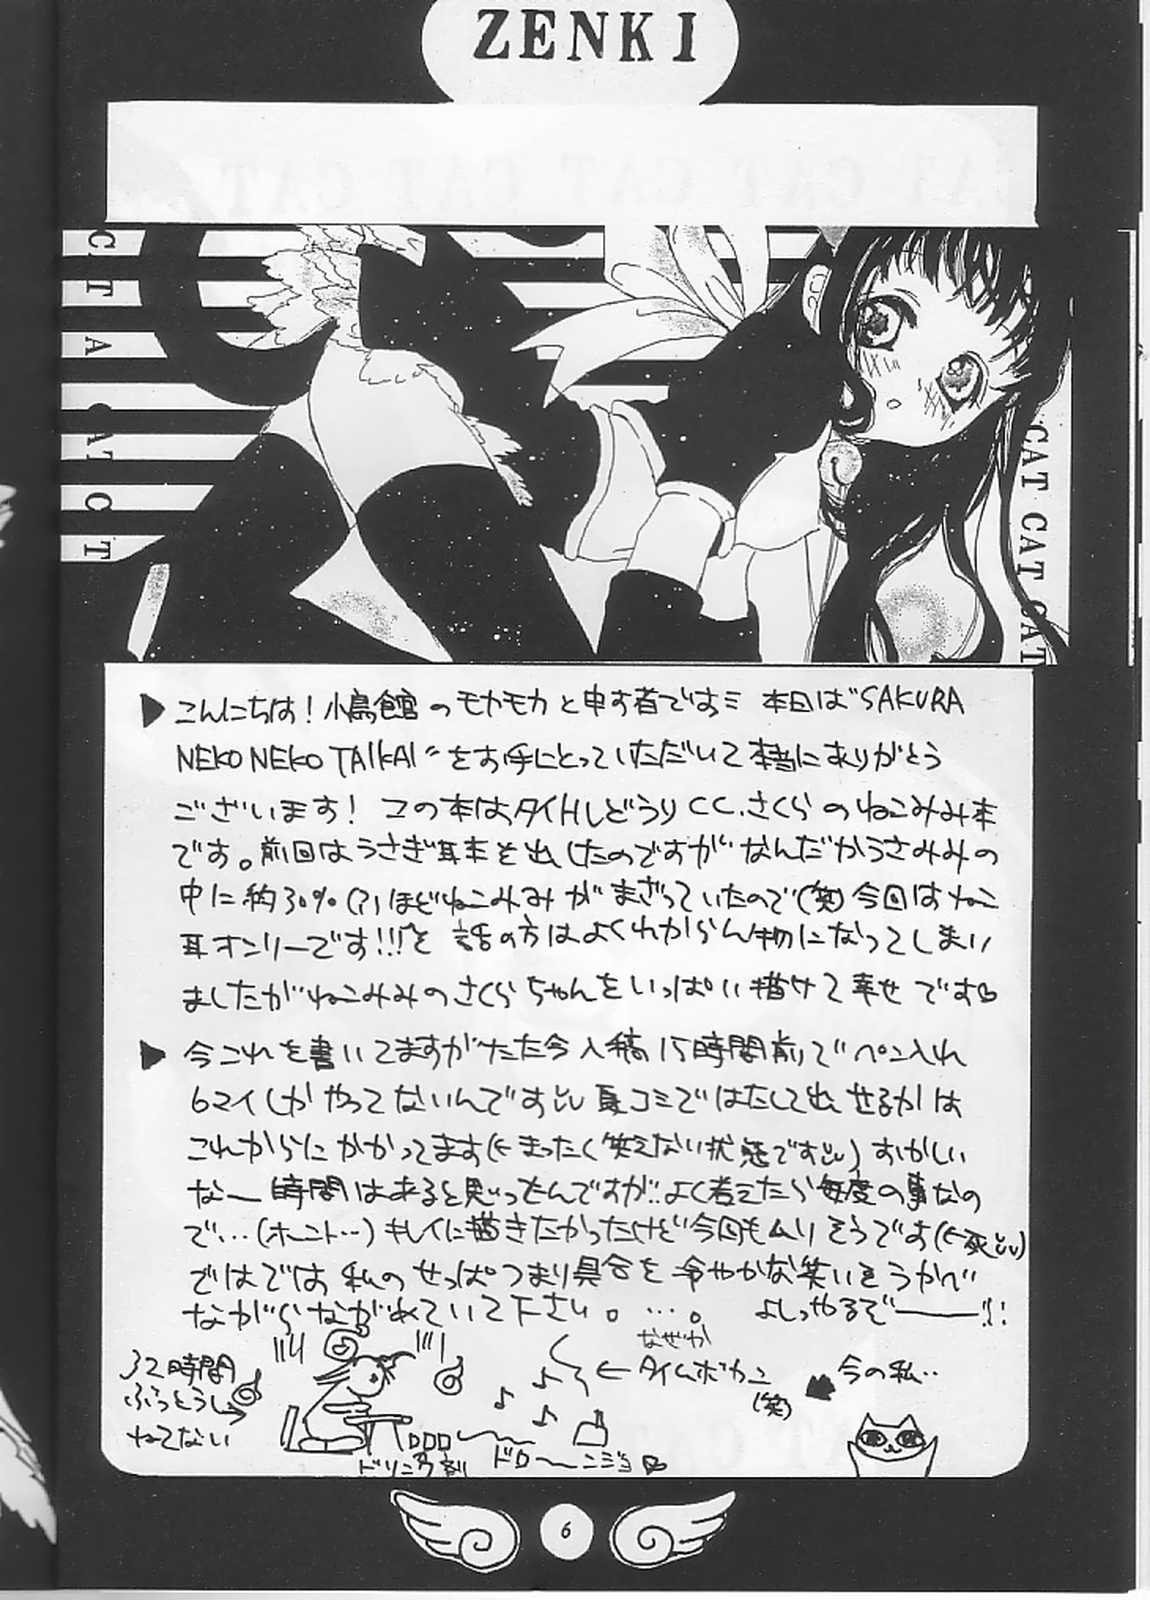 ZENKI
CAT CAT CAT
CAT CAT CAT
こんにちは！小鳥館のモカモカと申す者ですミ 本日は"SAKURA
NEKO NEKO TAIKAI"をお手にとっていただいて本当にありがとう
ございます！ この本はタイトルどうりCC.さくらのねこみみ本
です。前回はうさぎ耳本を出したのですがなんだかうさみみの
中に約30％(?)ほどねこみみがまざっていたので(笑)今回はねこ
耳オンリーです!!!と 話の方はよくわからん物になってしまい
ましたがねこみみのさくらちゃんをいっぱい描けて幸せです♡
今これを書いてますがただ今入稿15時間前でペン入れ
6マイしかやってないんです 夏コミではたして出せるかは
これからにかかってます(←まったく笑えない状態です) おかしい
なー 時間は来ると思ったんですが‥よく考えたら毎度の事なの
で…(ホント…)キレイに描きたかったけど今回もムリそうです(←死)
ではでは私のせっぱつまり具合を冷やかな笑いをうかべ
ながらながめていて下さい。…。 よしっやるぞ———!!
32時間
ぶっとうし
ねてない
なぜか
←タイムボカン
(笑)
ドリンク剤
今の私‥
6